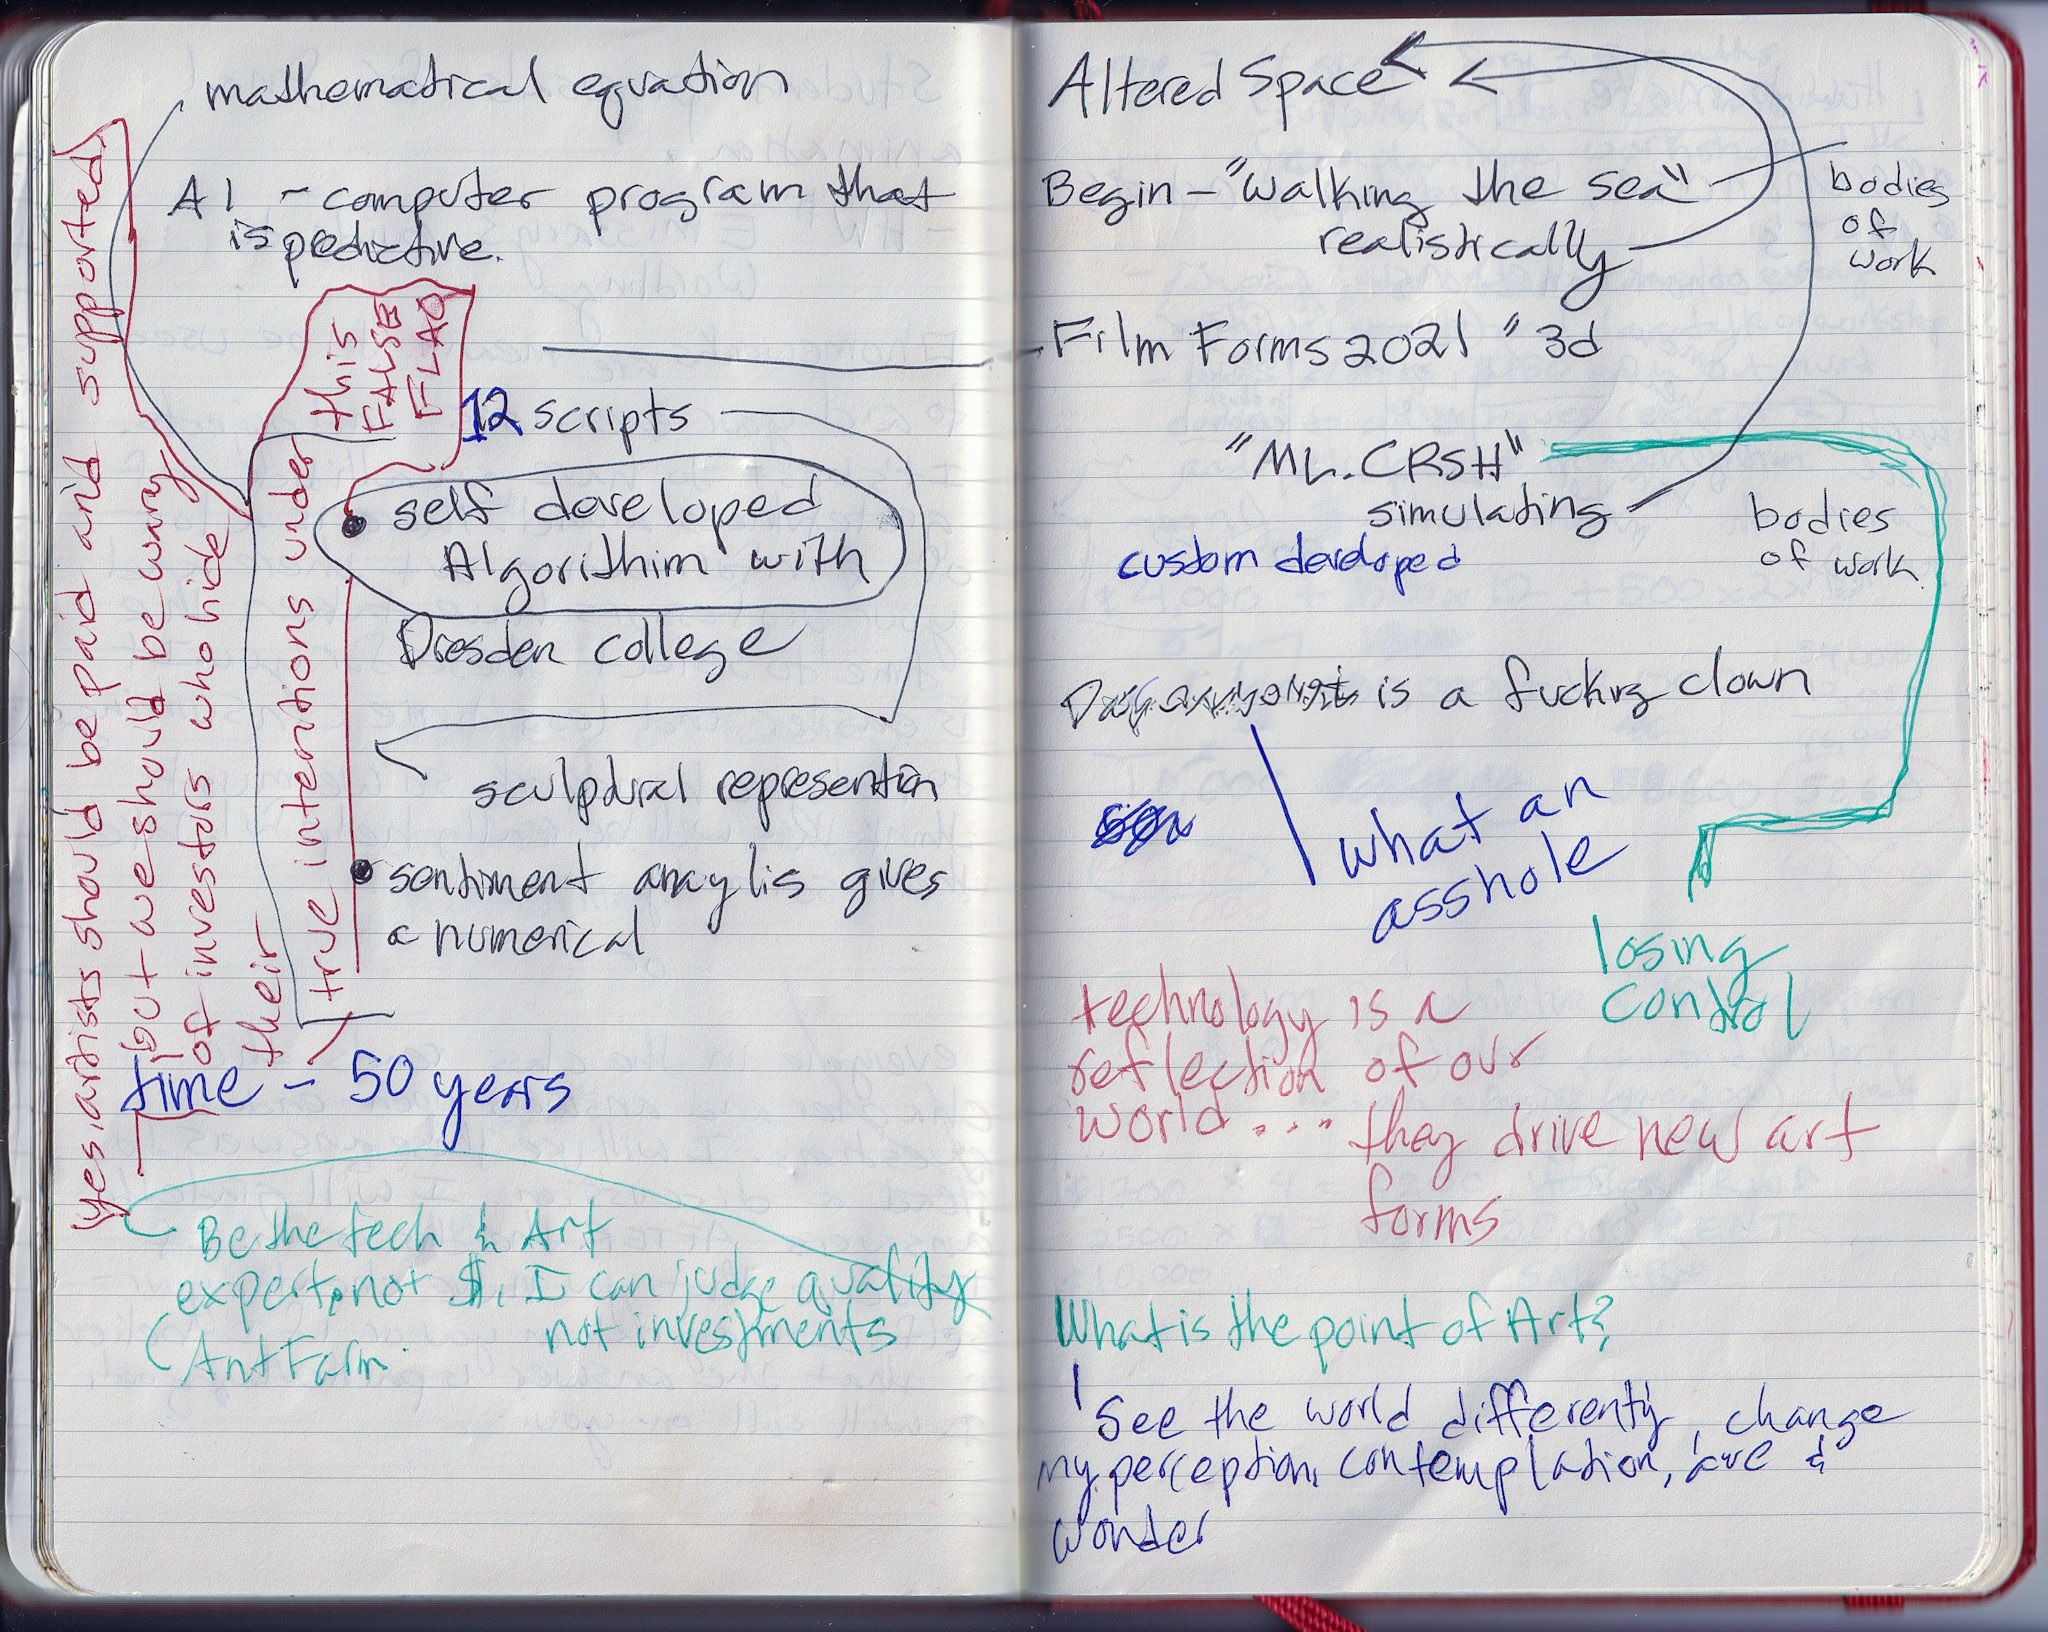 mathematical equation
AI - computer program that
is predictive.
yes, artists should be paid and supported,
but we should be wary
of investors who hide
their
true intentions under
this
FALSE
FLAG
12 scripts
self developed
Algorithim with
Dresden college
sculptural represention
sentiment anaylis gives
a numerical
time - 50 years
Be the tech & Art
expert, not $. I can judge quality
not investments
Ant Farm.
Altered Space
Begin - "walking the sea"
realistically
bodies
of
work
Film Forms 2021 " 3d
"ML.CRSH"
simulating
custom developed
bodies
of work
is a fucking clown
what an
asshole
losing
control
technology is a
reflection of our
world... they drive new art
forms
What is the point of Art?
See the world differenty, change
my perception, contemplation, awe &
wonder